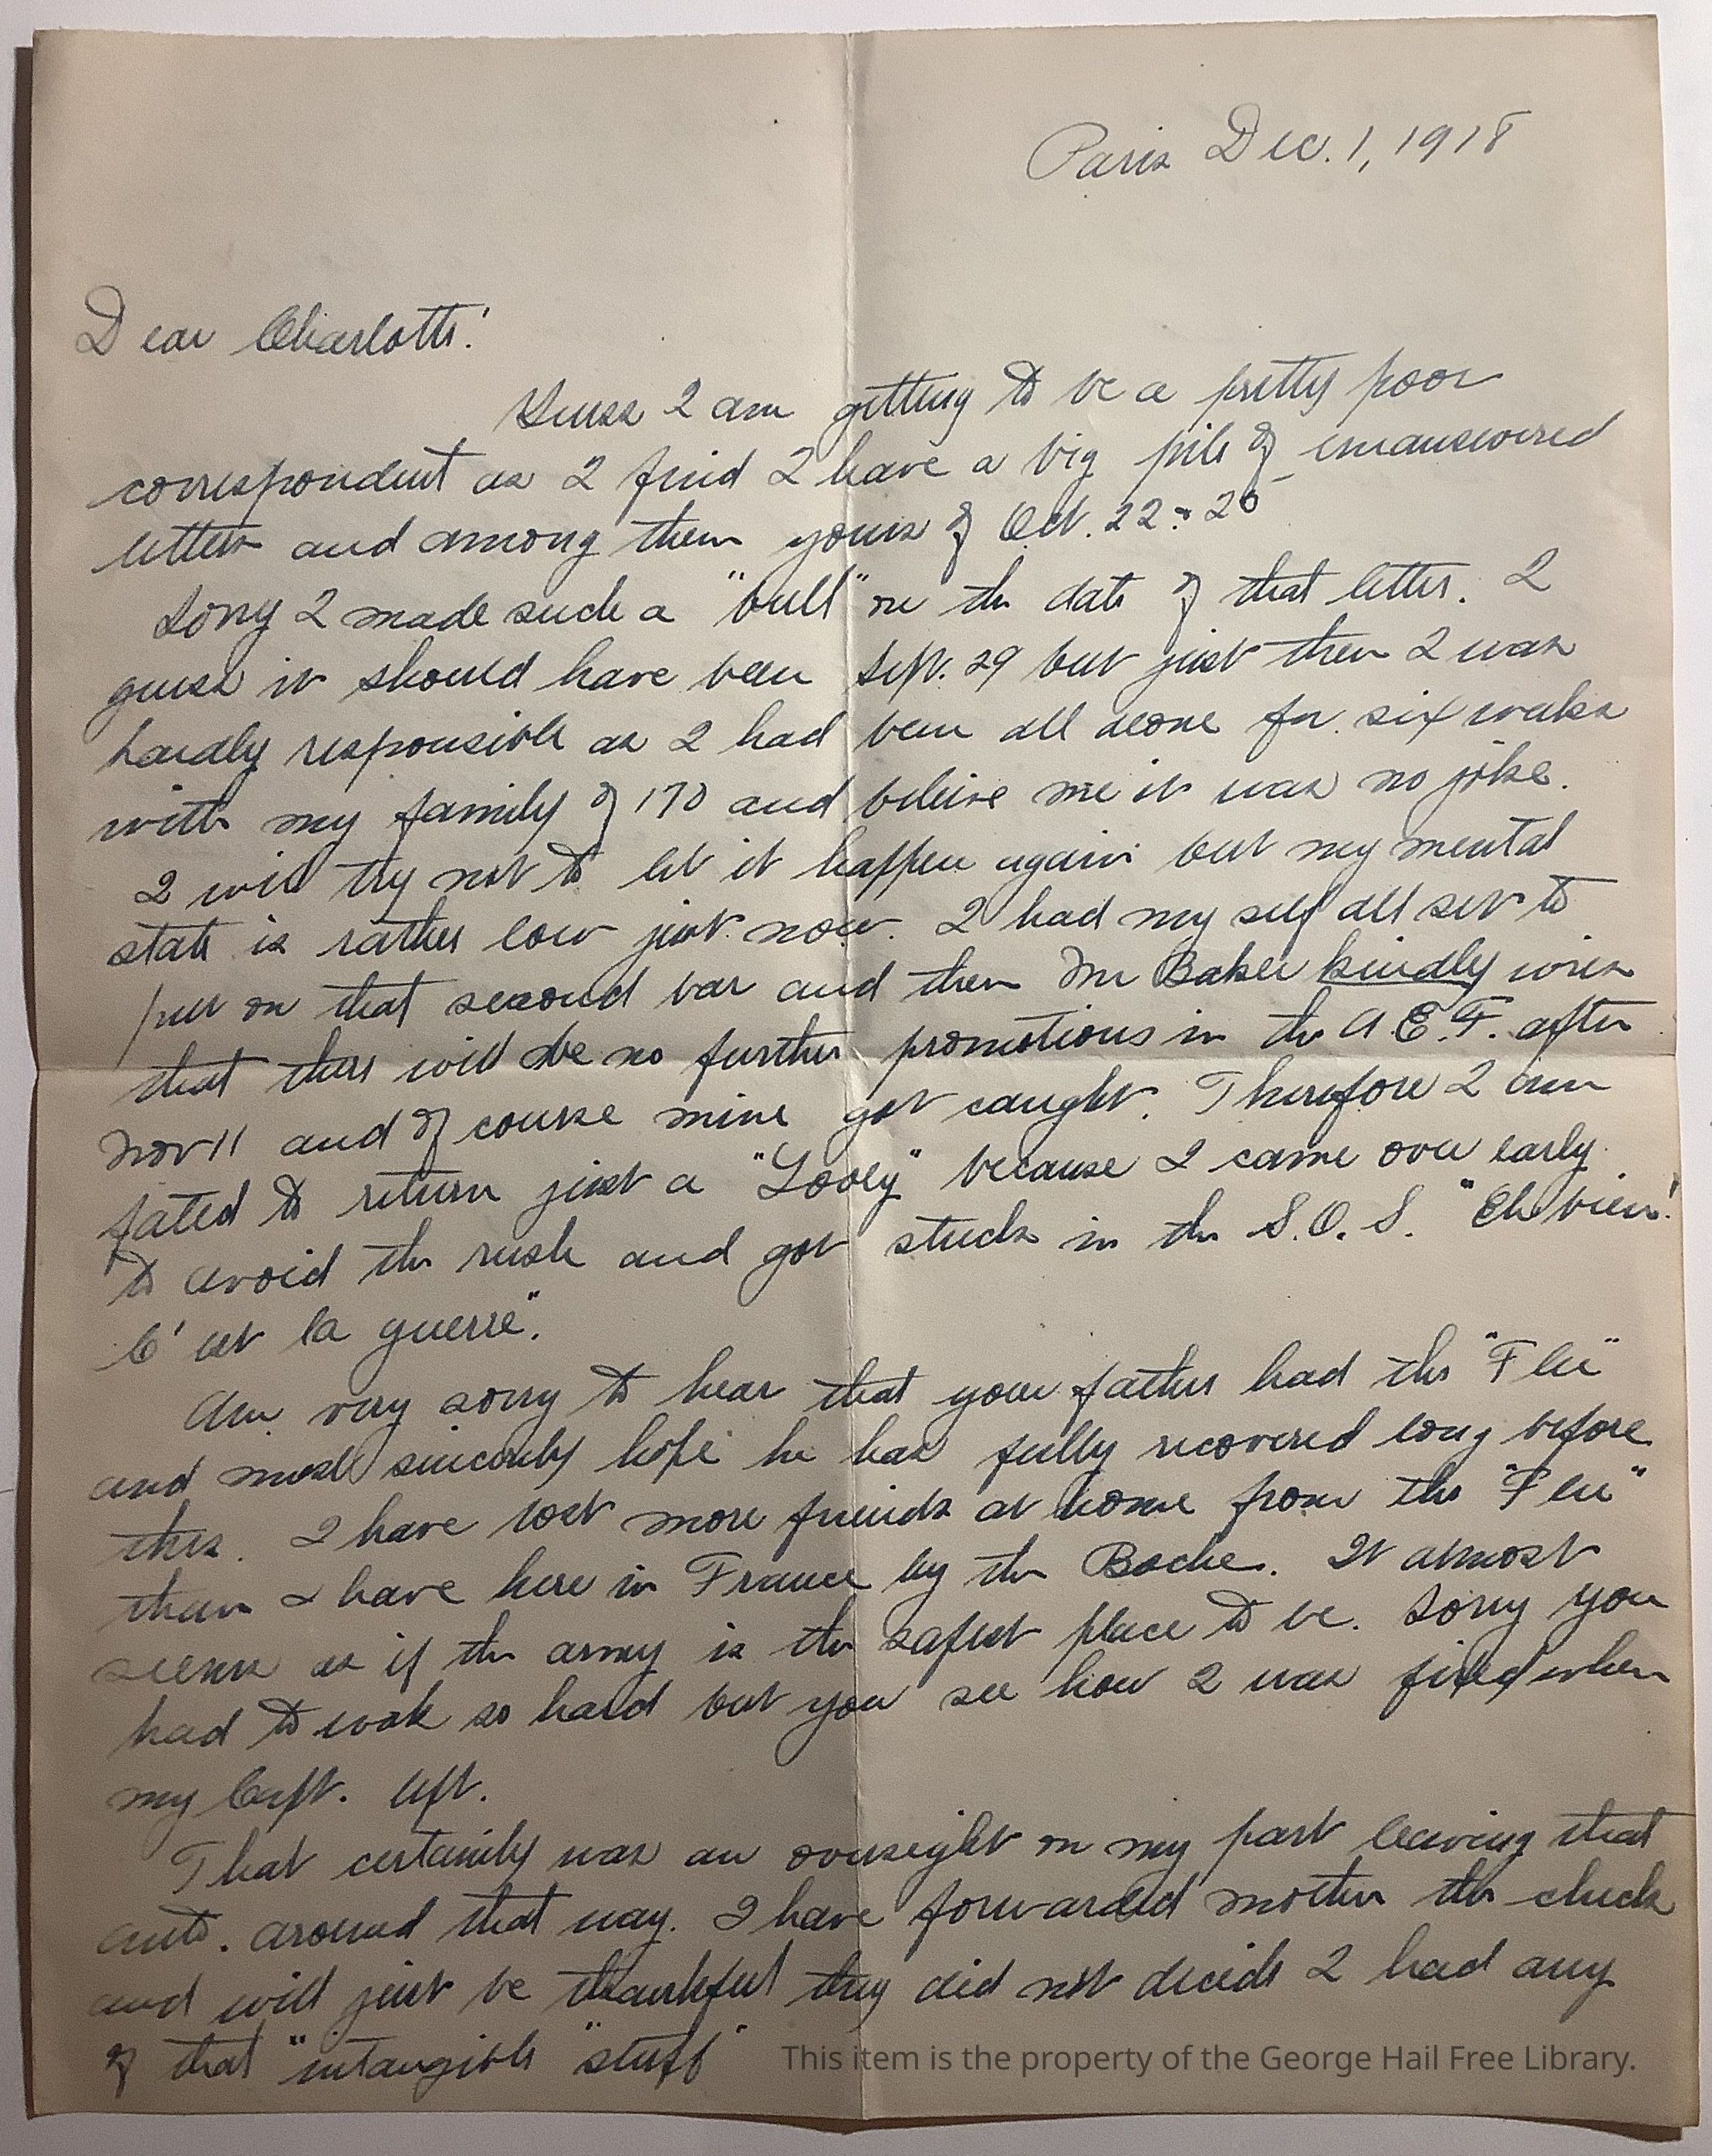 Paris Dec. 1, 1918
Dear Charlotte:
Guess I am getting to be a pretty poor
correspondent as I find I have a big pile of unanswered
letters and among them yours of Oct. 22 - 25
Sorry I made such a "bull" on the date of that letter. I
guess it should have been Sept. 29 but just then I was
hardly responsible as I had been all alone for six weeks
with my family of 170 and believe me it was no joke.
I will try not to let it happen again but my mental
state is rather low just now. I had my self all set to
put on that second bar and then Mr Baker kindly wires
that there will be no further promotions in the A.E.F. after
Nov 11 and of course mine got caught. Therefore I am
fated to return just a "Looey" because I came over early
to avoid the rush and got stuck in the S.O.S. "Eh bien!
C'est la guerre".
Am very sorry to hear that your father had the "Flu"
and most sincerely hope he has fully recovered long before
this. I have lost more friends at home from the "Flu"
than I have here in France by the Boche. It almost
seems as if the army is the safest place to be. Sorry you
had to work so hard but you see how I was fixed when
my Capt. left.
That certainly was an oversight on my part leaving that
auto. around that way. I have forwarded mother the check
and will just be thankful they did not decide I had any
of that "intangible "stuff"
This item is the property of the George Hail Free Library.